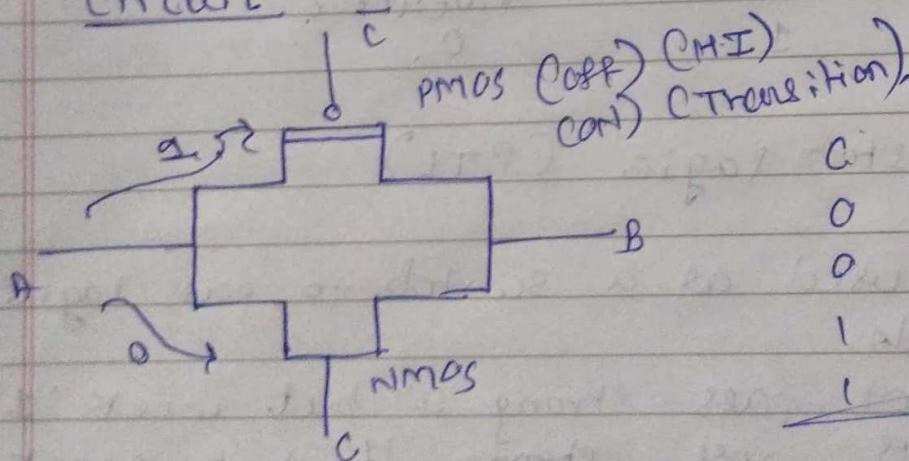 Circuit
C̅
PMOS (OFF) (H.I)
(ON) (Transition)
1
A
B
0
NMOS
C
C
0
0
1
1